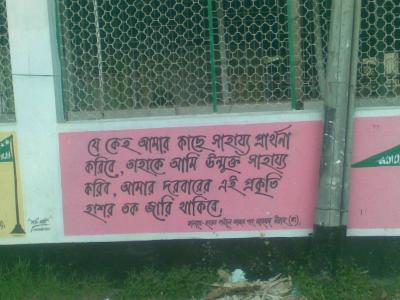 যে কেহ আমার কাছে সাহায্য প্রার্থনা
করিবে, তাহাকে আমি উন্মুক্ত সাহায্য
করিব, আমার দরবারের এই প্রকৃতি
হাশর তক জারি থাকিবে,